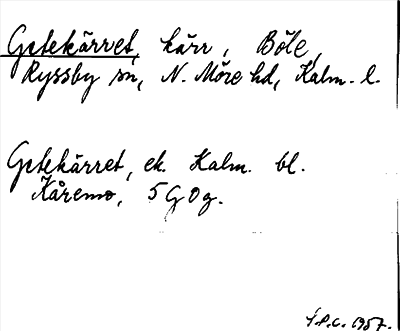 Getekärret, kärr, Böle,
Ryssby sn, N. Möre hd, Kalm. l.
Getekärret, ek. Kalm. bl.
Kåremo, 5 G 0 g.
1957.